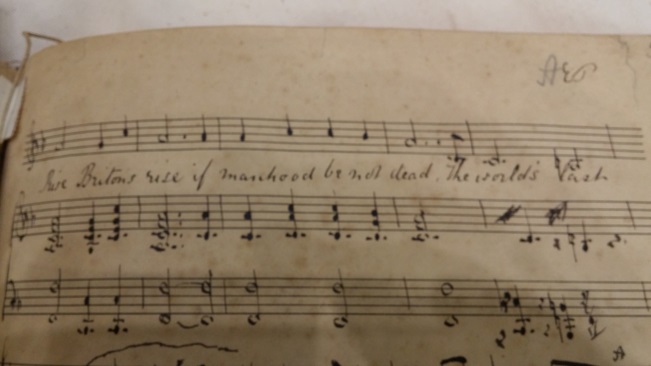 Rise Britons rise if manhood be not dead. The world's Vast